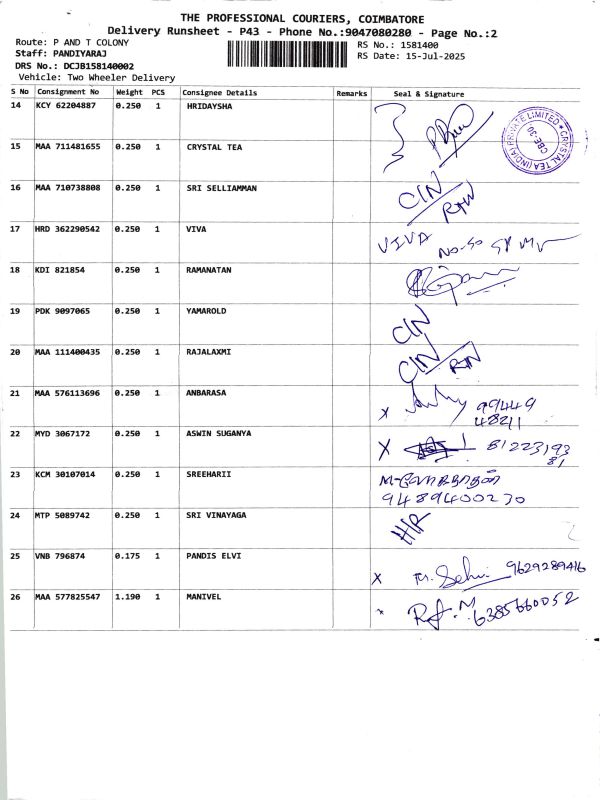 THE PROFESSIONAL COURIERS, COIMBATORE
Delivery Runsheet - P43 - Phone No.:9047080280 - Page No.:2
Route: P AND T COLONY
Staff: PANDIYARAJ
DRS No.: DCJB158140002
Vehicle: Two Wheeler Delivery
RS No.: 1581400
RS Date: 15-Jul-2025
S No Consignment No Weight PCS Consignee Details Remarks Seal & Signature
14 KCY 62204887 0.250 1 HRIDAYSHA
CRYSTAL TEA (INDIA) PRIVATE LIMITED * CBE-30
15 MAA 711481655 0.250 1 CRYSTAL TEA
16 MAA 710738808 0.250 1 SRI SELLIAMMAN C/N
17 HRD 362290542 0.250 1 VIVA VIVA
18 KDI 821854 0.250 1 RAMANATAN
19 PDK 9097065 0.250 1 YAMAROLD C/N
20 MAA 111400435 0.250 1 RAJALAXMI C/N
21 MAA 576113696 0.250 1 ANBARASA x 99449
48211
22 MYD 3067172 0.250 1 ASWIN SUGANYA X 81223193
81
23 KCM 30107014 0.250 1 SREEHARII
9489400230
24 MTP 5089742 0.250 1 SRI VINAYAGA H/R
25 VNB 796874 0.175 1 PANDIS ELVI X 9629289416
26 MAA 577825547 1.190 1 MANIVEL x 6385660052